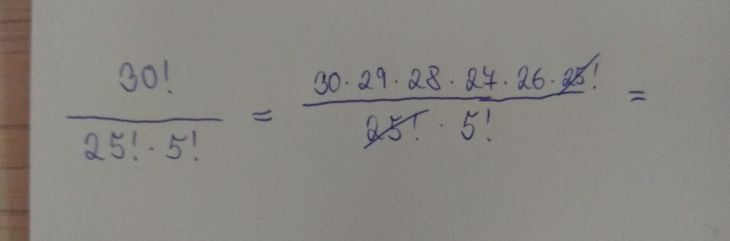 30! / 25! · 5! = 30 · 29 · 28 · 27 · 26 · 25! / 25! · 5! =